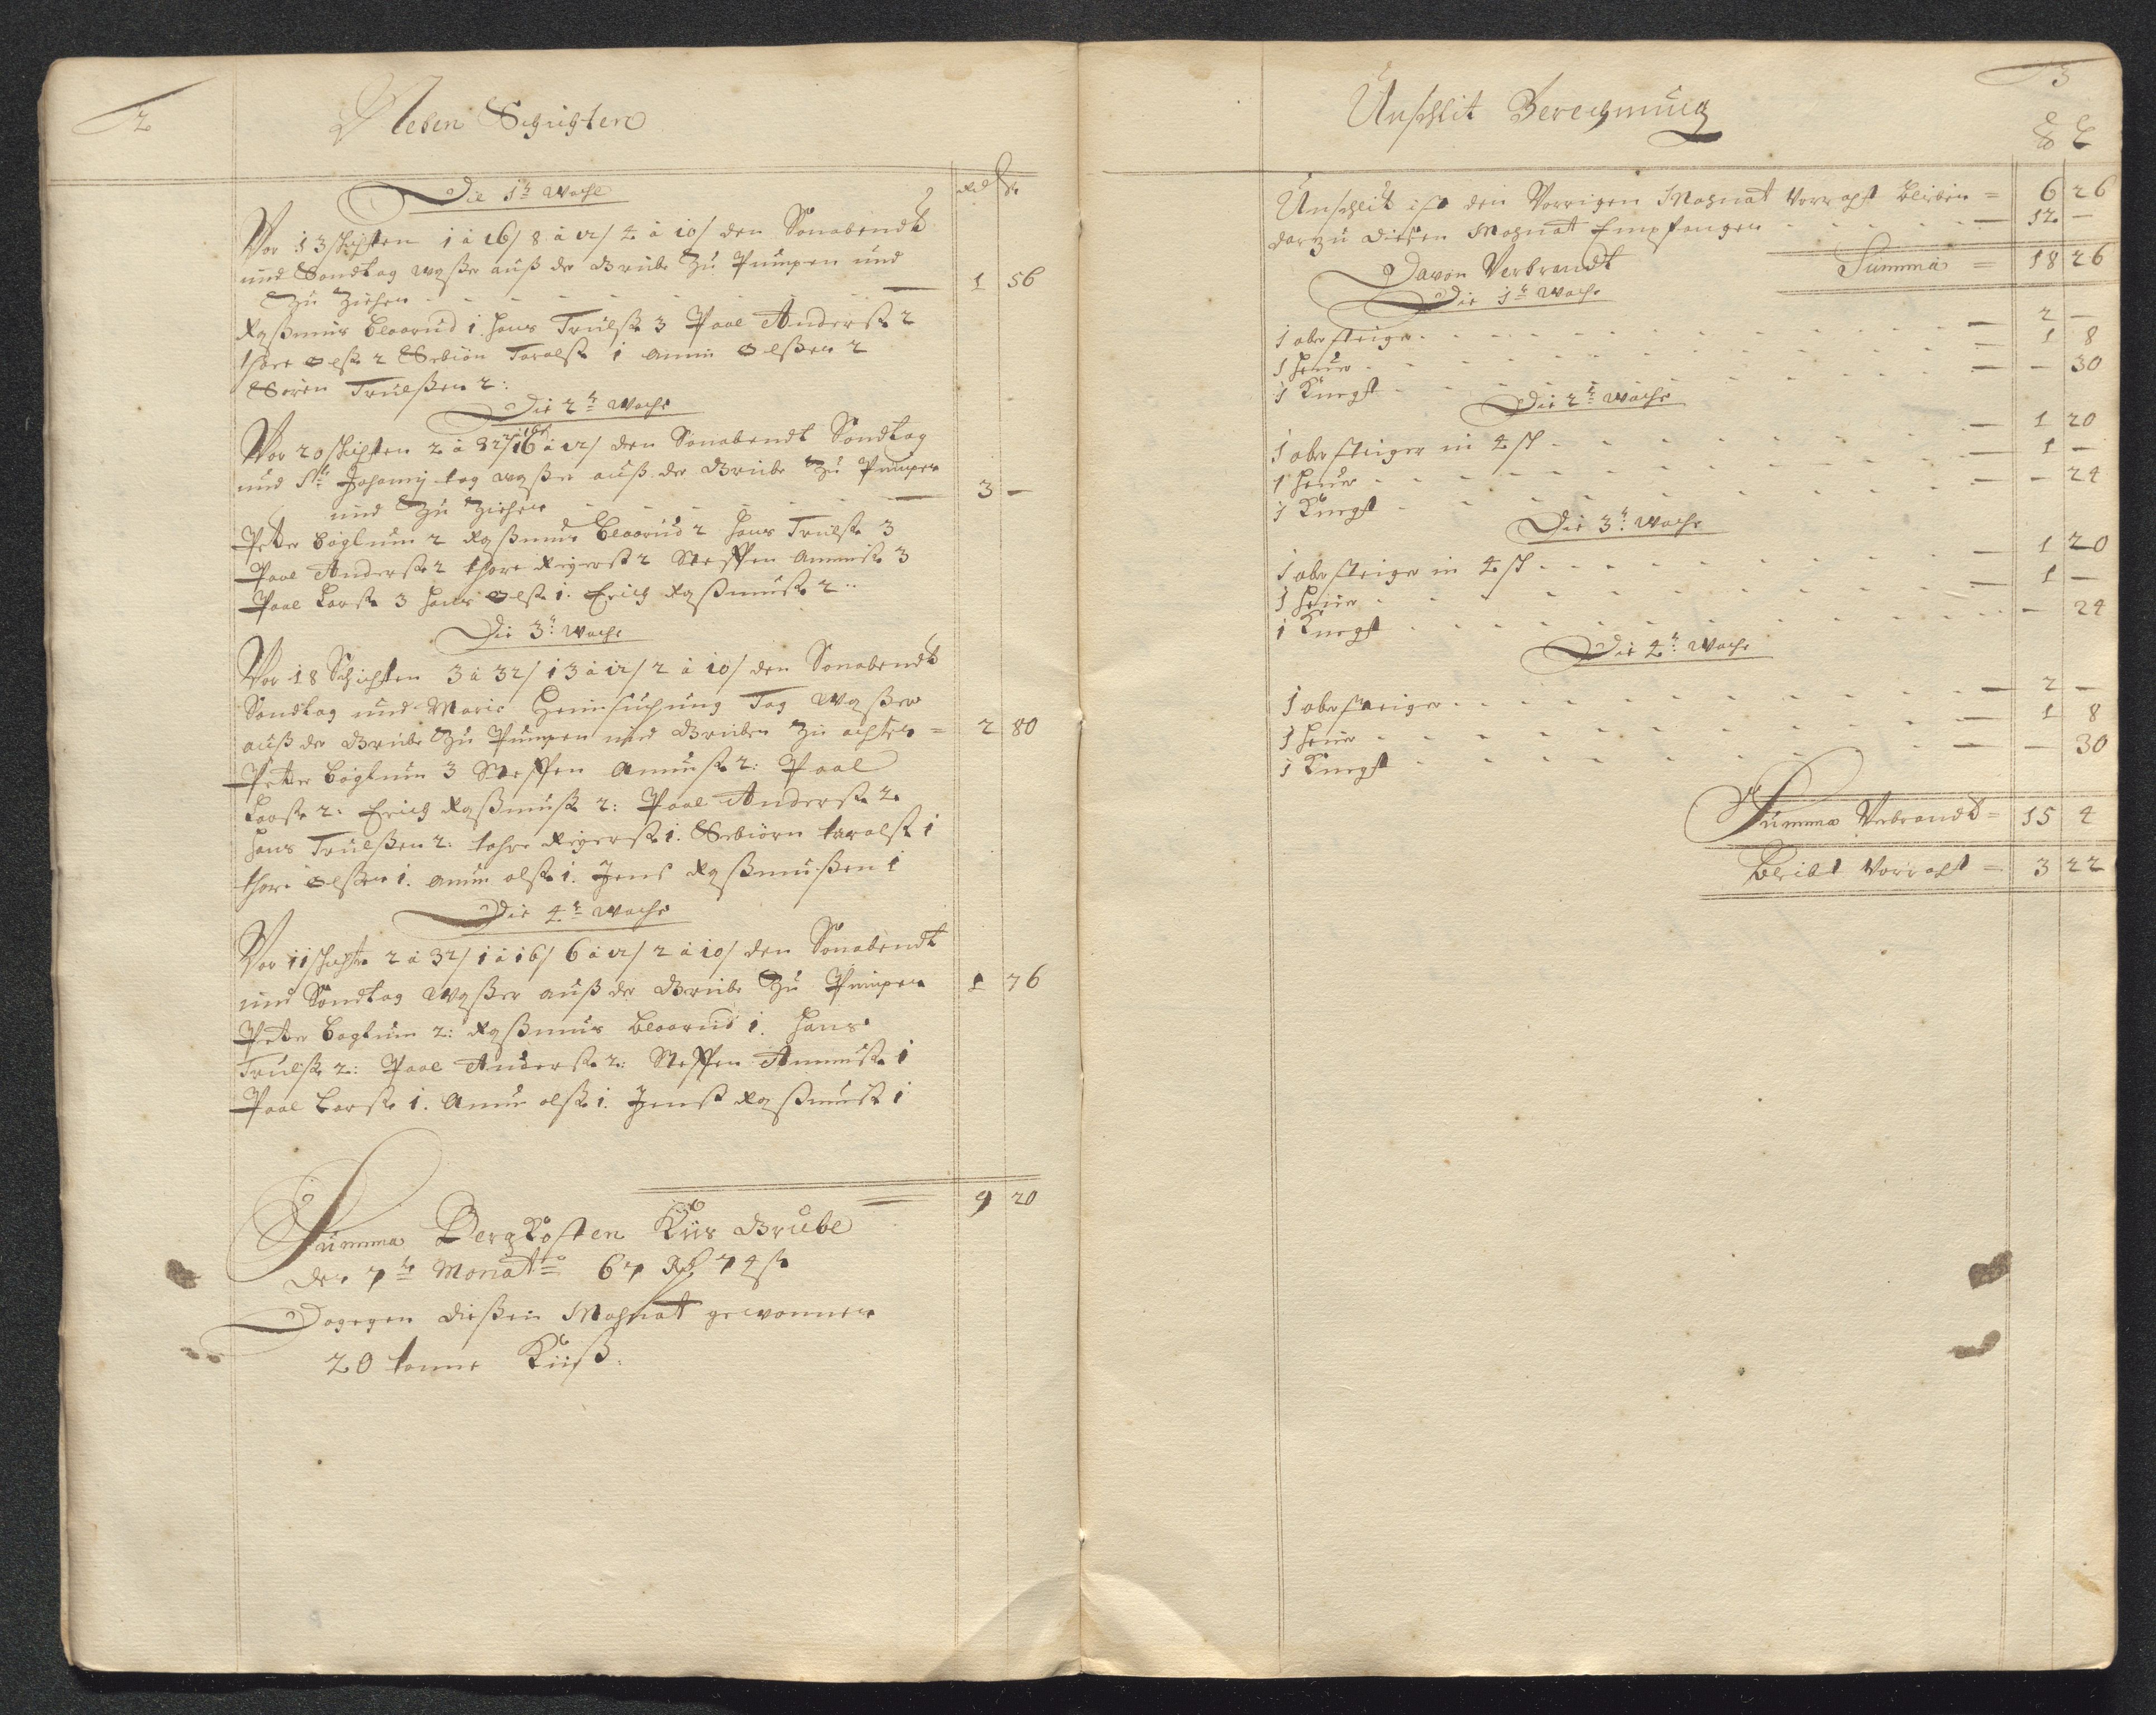 2
Neben Schichten
Rd ß
Die 1te Woche
Vor 13 schichten 1 à 16/ 8 à 12/ 4 à 10/ den Sonabendt
und Sondtag waßer auß der Grube Zu Pumpen und
Zu Ziehen - - - - - 1 56
Raßmus Blaarud 1 Hans Trulß 3 Paal Anderß 2
thore Olß 2 Tarolß 1 Amun Olßen 2
Sören Trulßen 2:
Die 2te Woche
Vor 20 schichten 2 à 32/ 2 à 16/ 16 à 12/ den Sonabendt Sondtag
und St Johanny tag waßer auß der Grube Zu Pumpen
und Zu Ziehen - - - - 3 -
Petter Boglum 2 Raßmus Blaarud 2 Hans Trulß 3
Paal Anderß 2 thore Regerß 2 Steffen Amunß 3
Paal Larß 3 Hans Olß 1. Erich Raßmuß 2:
Die 3te Woche
Vor 18 Schichten 3 à 32/ 13 à 12/ 2 à 10/ den Sonabendt
Sondtag und Maria Heimsuchung Tag Waßer
auß der Grube Zu Pumpen und Gruben Zu achten = 2 80
Petter Boglum 3 Steffen Amunß 2: Paal
Larß 2: Erich Raßmuß 2: Paal Anderß 2.
Hans Trulßen 2: tohre Regerß 1. tarolß 1
thore Olßen 1. Amun olß 1. Jens Raßmußen 1
Die 4te Woche
Vor 11 schichten 2 à 32/ 1 à 16/ 6 à 12/ 2 à 10/ den Sonabendt
und Sondtag Waßer auß der Grube Zu Pumpen 1 76
Petter Boglum 2: Raßmus Blaarud 1. Hans
Trulß 2: Paal Anderß 2: Steffen Amunß 1
Paal Larß 1. Amun olß 1. Jenß Raßmuß 1
9 20
Summa Bergkosten Kiis Grube
der 7te Monat 67 Rd 74 ß
Dagegen dießen Mohnat gewonnen
20 tonne Kiiß:
3
Unschlit Berechnung
Unschlit ist den Vorrigen Mohnat Vorraht bliben = 6 26
darzu diesen Mohnat Empfangen - - - 12 -
Davon Verbrandt Summa = 18 26
Die 1te Woche
1 obersteiger - - - 2 -
1 Heuer - - - 1 8
1 Knegt - - - - 30
Die 2te Woche
1 obersteiger in 4 sch - - - 1 20
1 Heuer - - - 1 -
1 Knegt - - - - 24
Die 3te Woche
1 obersteiger in 4 sch - - - 1 20
1 Heuer - - - 1 -
1 Knegt - - - - 24
Die 4te Woche
1 obersteiger - - - 2 -
1 Heuer - - - 1 8
1 Knegt - - - - 30
Summa Verbrandt = 15 4
Bleibt Vorraht = 3 22